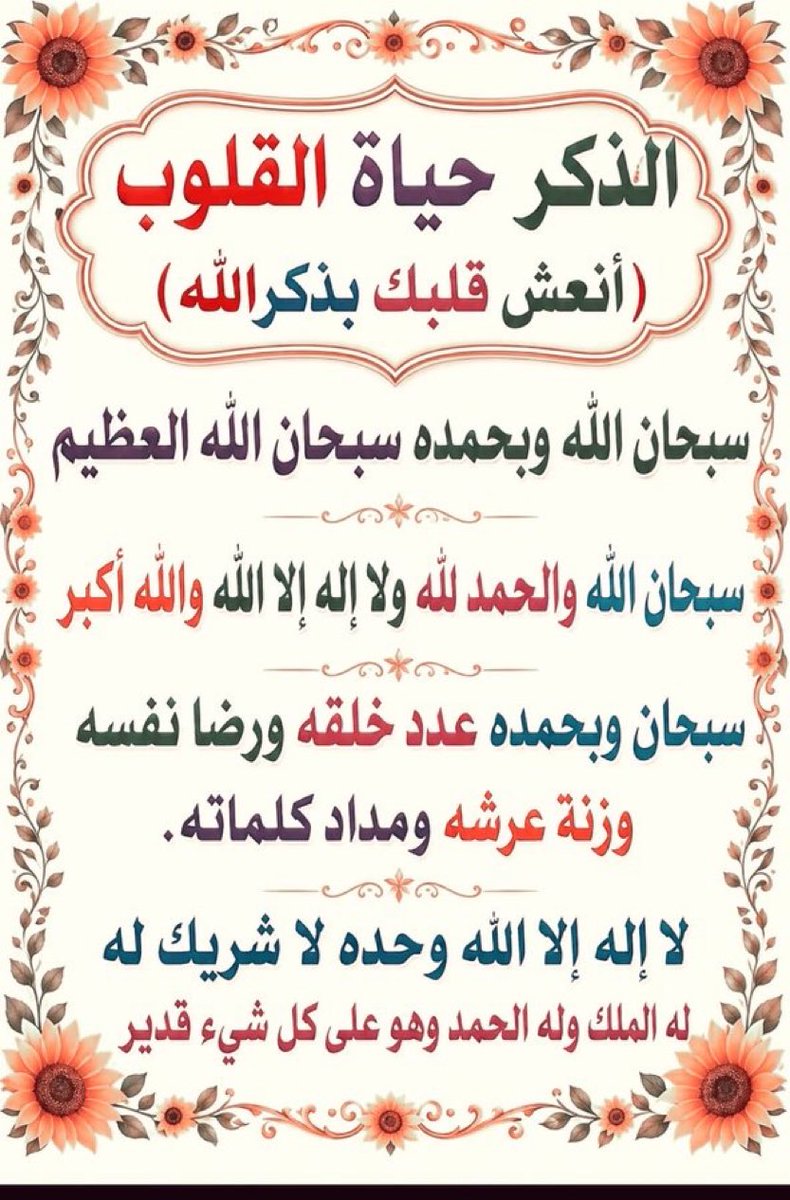 الذكر حياة القلوب
(أنعش قلبك بذكرالله)
سبحان الله وبحمده سبحان الله العظيم
سبحان الله والحمد لله ولا إله إلا الله والله أكبر
سبحان وبحمده عدد خلقه ورضا نفسه
وزنة عرشه ومداد كلماته.
لا إله إلا الله وحده لا شريك له
له الملك وله الحمد وهو على كل شيء قدير